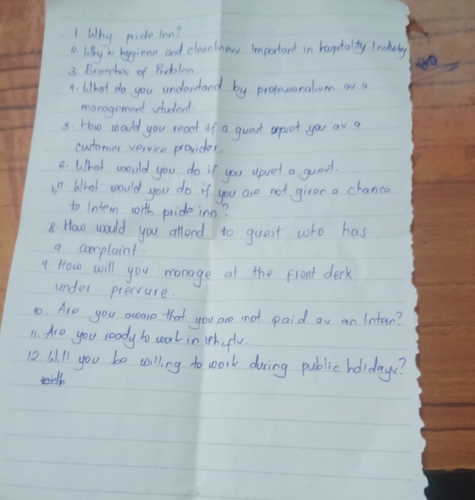 1. Why pride Inn?
2. Why is hygiene and cleanliness Important in hospitality Industry
3. Branches of PrideInn
4. What do you understand by professionalism as a
management student.
5. How would you react if a guest upset you as a
customer service provider.
6. What would you do if you upset a guest.
7. What would you do if you are not given a chance
to Intern with pride inn?
8. How would you attend to guest who has
a complaint.
9. How will you manage at the front desk
under pressure.
10. Are you aware that you are not paid as an Intern?
11. Are you ready to work in shifts.
12. Will you be willing to work during public holidays?
with